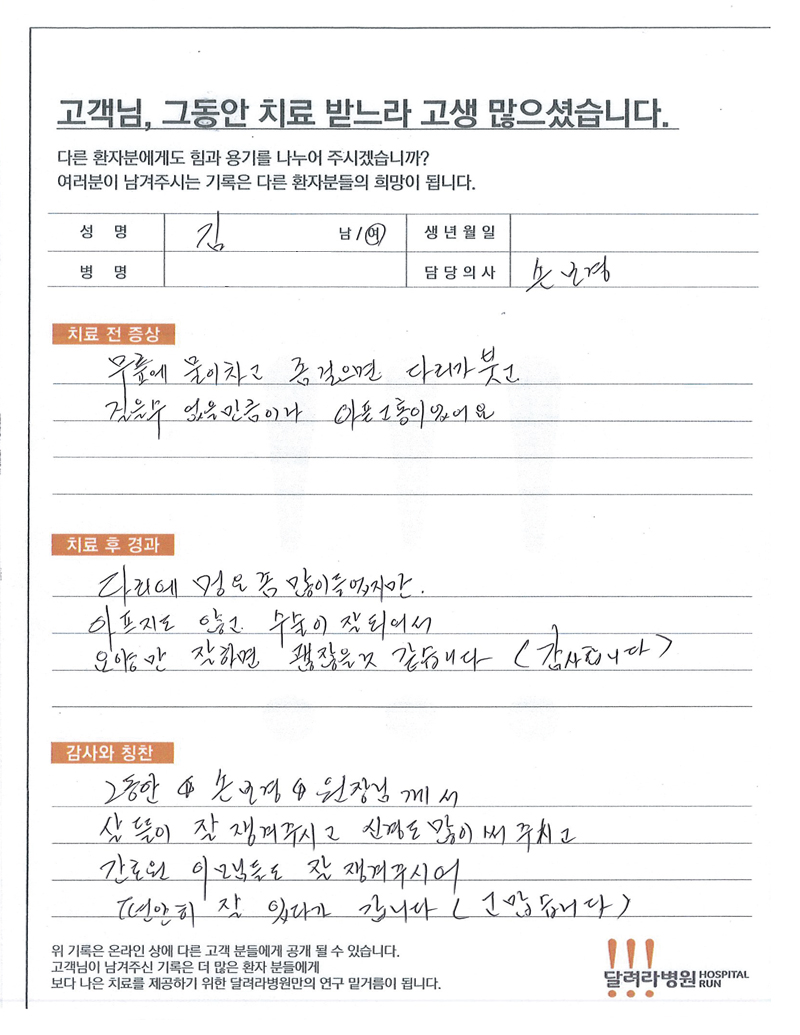 고객님, 그동안 치료 받느라 고생 많으셨습니다.
다른 환자분에게도 힘과 용기를 나누어 주시겠습니까?
여러분이 남겨주시는 기록은 다른 환자분들의 희망이 됩니다.
성 명 김 남/여 생년월일
병 명 담당의사 손보경
치료 전 증상
무릎에 물이차고 좀걸으면 다리가 붓고
걸을수 없을만큼이나 아픈고통이있어요
치료 후 경과
다리에 멍은 좀 많이들었지만.
아프지도 않고 수술이 잘되어서
요양만 잘하면 괜찮을것 같습니다 (감사합니다)
감사와 칭찬
그동안 손보경 원장님 께서
살뜰이 잘 챙겨주시고 신경도많이써 주시고
간호원 이모님들도 잘 챙겨주시어
편안히 잘 있다가 갑니다 (고맙습니다)
위 기록은 온라인 상에 다른 고객 분들에게 공개 될 수 있습니다.
고객님이 남겨주신 기록은 더 많은 환자 분들에게
보다 나은 치료를 제공하기 위한 달려라병원만의 연구 밑거름이 됩니다.
!!!
달려라병원 HOSPITAL RUN